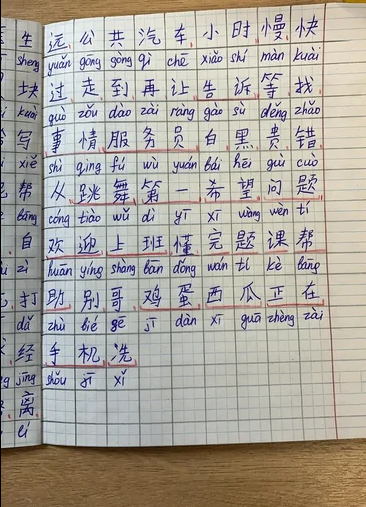 生 远 公 共 汽 车 小 时 慢 快
sheng yuǎn gōng gòng qì chē xiǎo shí màn kuài
块 过 走 到 再 让 告 诉 等 找
kuài guò zǒu dào zài ràng gào sù děng zhǎo
写 事 情 服 务 员 白 黑 贵 错
xiě shì qing fú wù yuán bái hēi guì cuò
帮 从 跳 舞 第 一 希 望 问 题
bāng cóng tiào wǔ dì yī xī wàng wèn tí
自 欢 迎 上 班 懂 完 题 课 帮
zì huān yíng shàng bān dǒng wán tí kè bāng
打 助 别 哥 鸡 蛋 西 瓜 正 在
dǎ zhù bié gē jī dàn xī guā zhèng zài
经 手 机 洗
jīng shǒu jī xǐ
离
lí